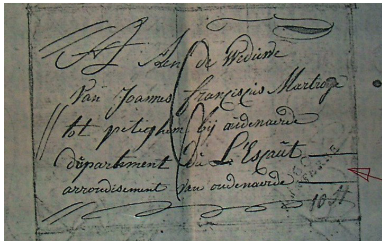 A
Aen de Weduwe
Van Joannes Franciscus Martroye
tot petighem bij audenaerde
departement du L'Escaut
arrondisement van oudenaerde
10 St